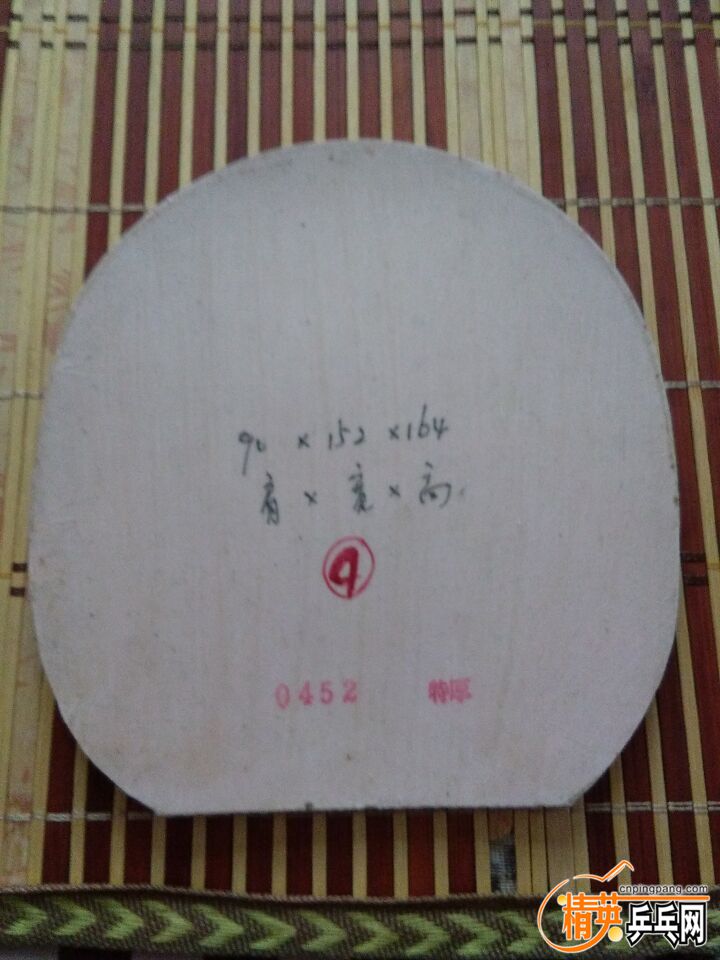 90 × 152 × 164
肩 × 宽 × 高
9
0452 特厚
cnpingpang.com
精英乒乓网